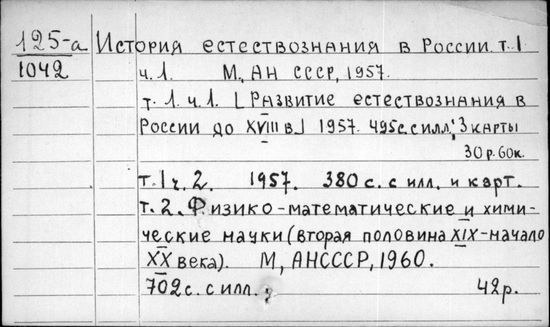 125-а История естествознания в России. т. 1
1042 ч. 1. М., АН СССР, 1957.
т. 1. ч. 1. [Развитие естествознания в
России до XVIII в.] 1957. 495 с. с илл.; 3 карты
30 р. 60 к.
т. 1 ч. 2. 1957. 380 с. с илл. и карт.
т. 2. Физико-математические и хими-
ческие науки (вторая половина XIX - начало
XX века). М., АН СССР, 1960.
702 с. с илл.; 42 р.